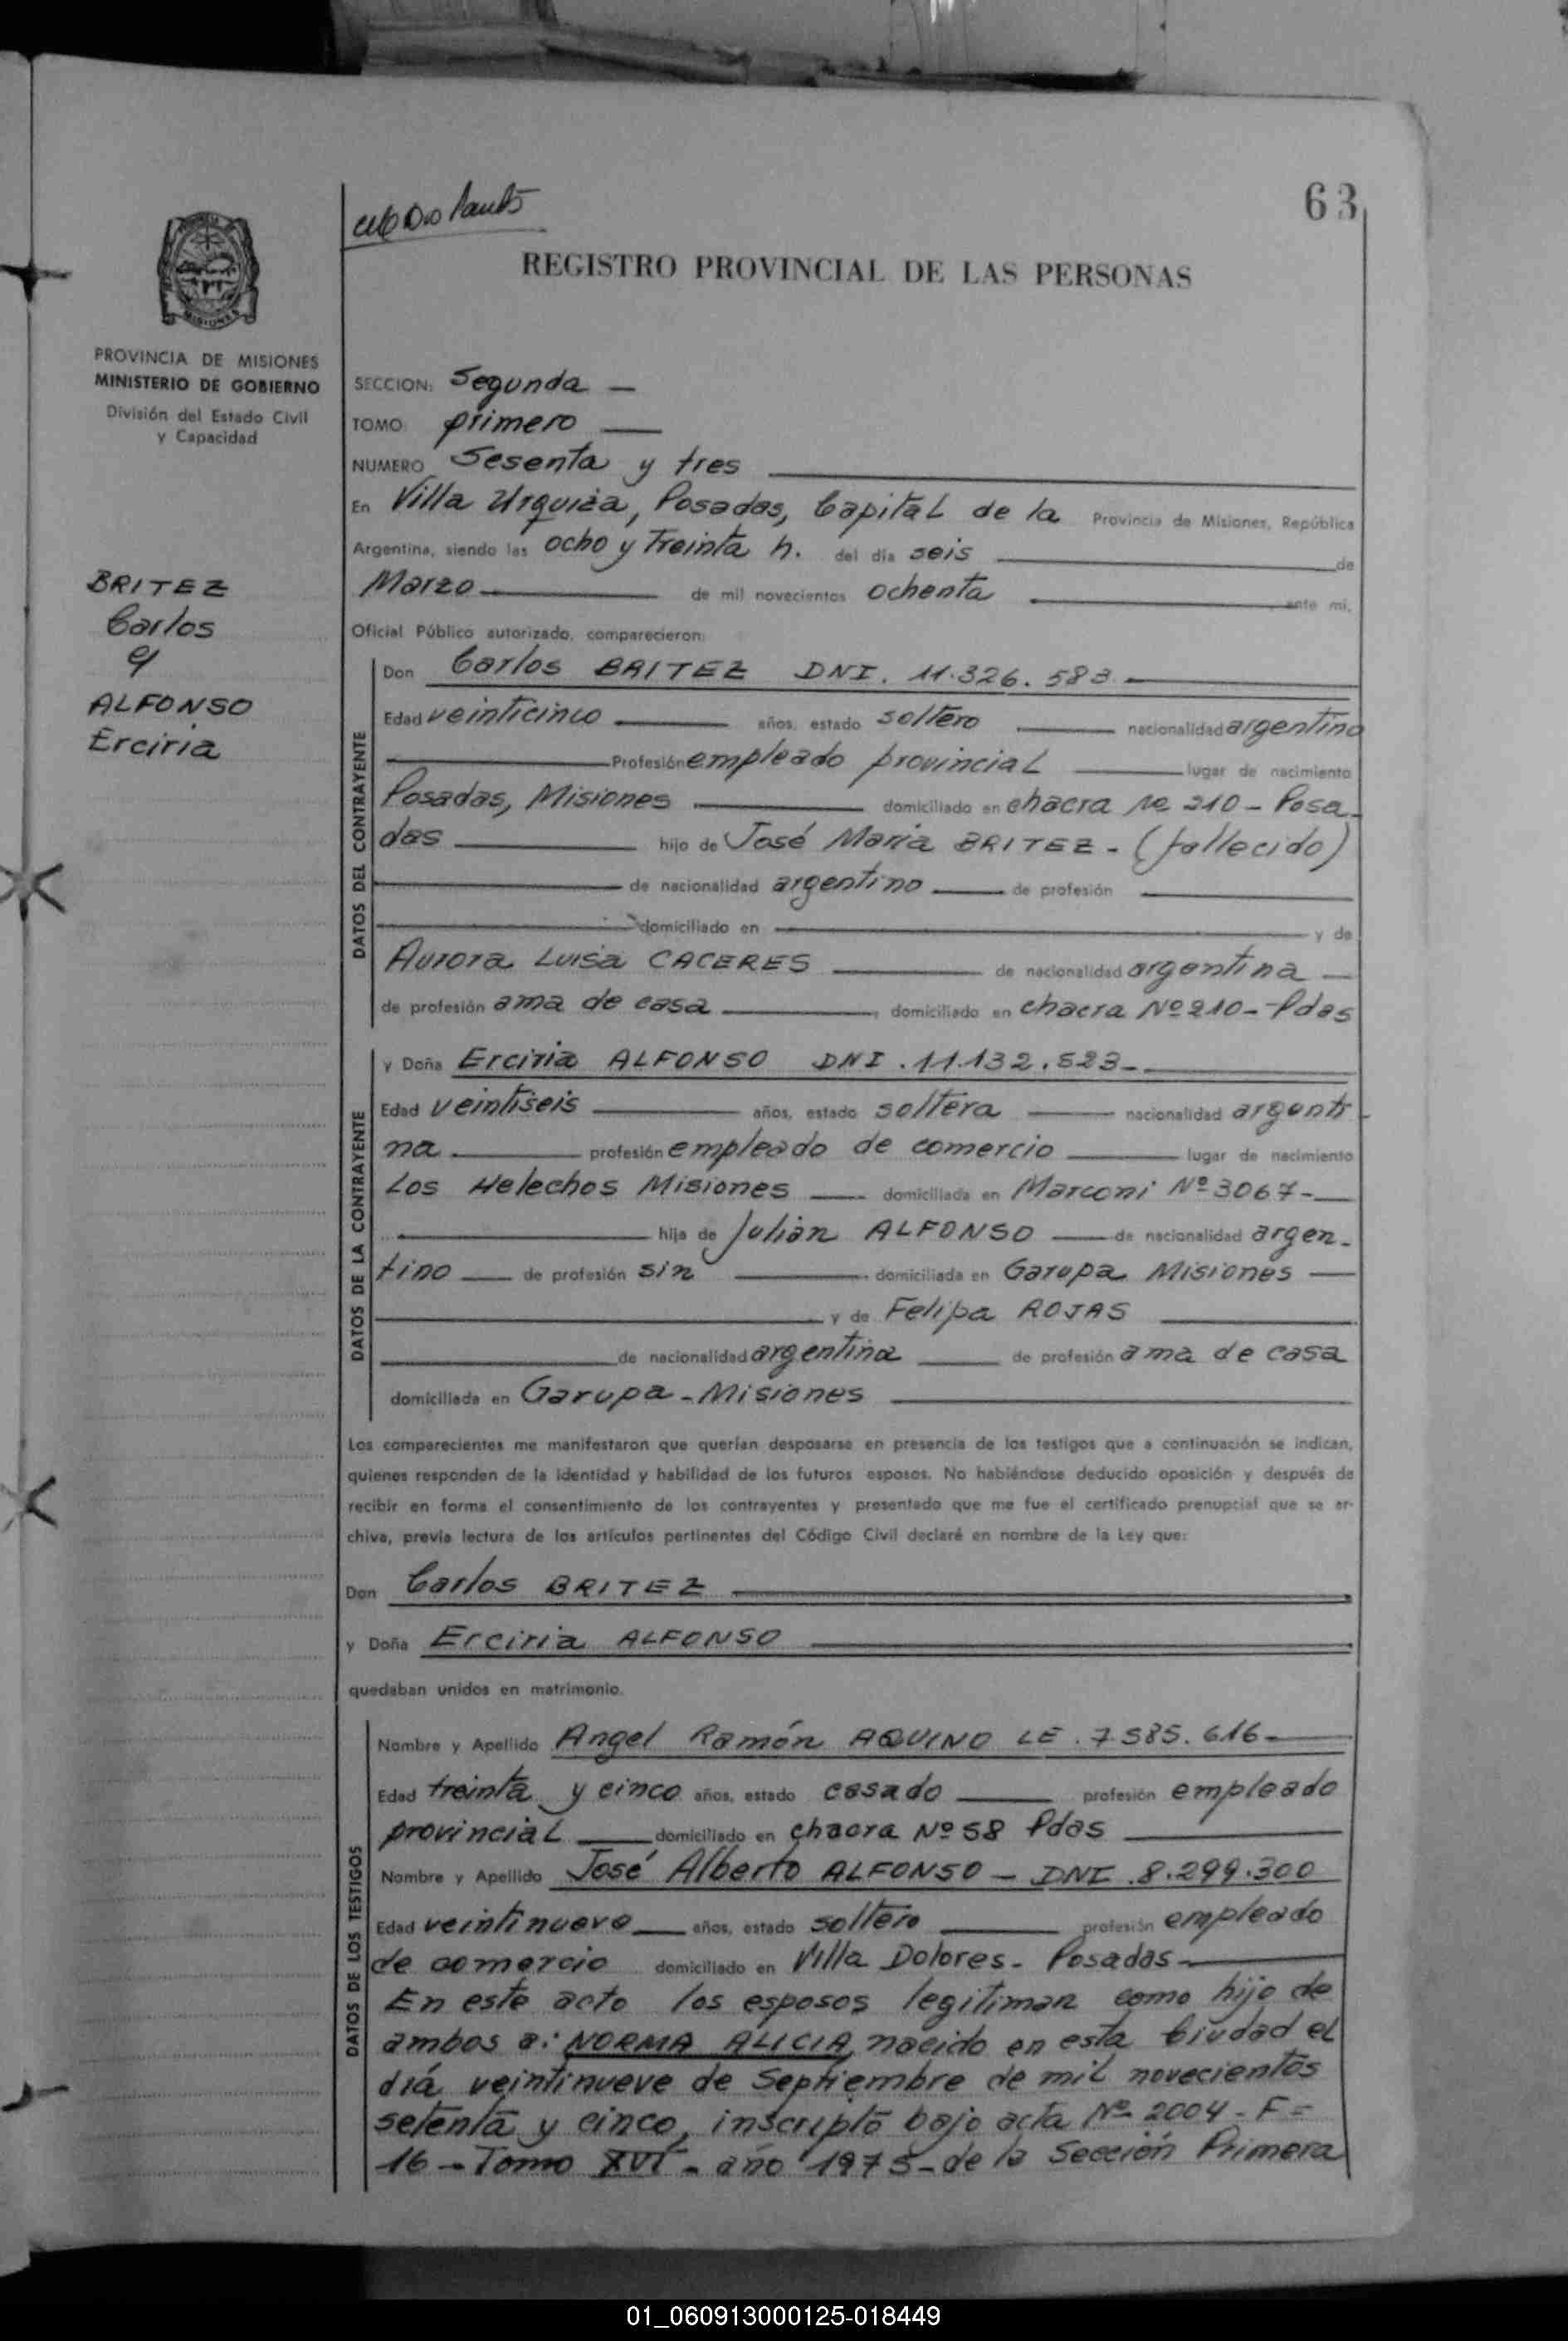 63
REGISTRO PROVINCIAL DE LAS PERSONAS
MISIONES
PROVINCIA DE MISIONES
MINISTERIO DE GOBIERNO
División del Estado Civil
y Capacidad
BRITEZ
Carlos
y
ALFONSO
Erciria
SECCION: Segunda —
TOMO: primero —
NUMERO Sesenta y tres
En Villa Urquiza, Posadas, Capital de la Provincia de Misiones, República
Argentina, siendo las ocho y Treinta h. del día seis de
Marzo de mil novecientos ochenta ante mí,
Oficial Público autorizado, comparecieron:
DATOS DEL CONTRAYENTE
Don Carlos BRITEZ DNI. 11.326.583.
Edad veinticinco años, estado soltero nacionalidad argentino
Profesión empleado provincial lugar de nacimiento
Posadas, Misiones domiciliado en chacra No 210 - Posa-
das hijo de José Maria BRITEZ - (fallecido)
de nacionalidad argentino de profesión
domiciliado en y de
Aurora Luisa CACERES de nacionalidad argentina —
de profesión ama de casa, domiciliado en chacra Nº 210 - Pdas
DATOS DE LA CONTRAYENTE
y Doña Erciria ALFONSO DNI. 11.132.523-
Edad veintiseis años, estado soltera nacionalidad argenti-
na profesión empleado de comercio lugar de nacimiento
Los Helechos Misiones domiciliada en Marconi Nº 3067-
hija de Julián ALFONSO de nacionalidad argen-
tino de profesión sin domiciliada en Garupa Misiones
y de Felipa ROJAS
de nacionalidad argentina de profesión ama de casa
domiciliada en Garupa - Misiones
Los comparecientes me manifestaron que querían desposarse en presencia de los testigos que a continuación se indican,
quienes responden de la identidad y habilidad de los futuros esposos. No habiéndose deducido oposición y después de
recibir en forma el consentimiento de los contrayentes y presentado que me fue el certificado prenupcial que se ar-
chiva, previa lectura de los artículos pertinentes del Código Civil declaré en nombre de la Ley que:
Don Carlos BRITEZ
y Doña Erciria ALFONSO
quedaban unidos en matrimonio.
DATOS DE LOS TESTIGOS
Nombre y Apellido Angel Ramón AQUINO LE. 7.585.616-
Edad treinta y cinco años, estado casado profesión empleado
provincial domiciliado en chacra Nº 58 Pdas
Nombre y Apellido José Alberto ALFONSO - DNI. 8.299.300
Edad veintinueve años, estado soltero profesión empleado
de comercio domiciliado en Villa Dolores - Posadas -
En este acto los esposos legitiman como hijo de
ambos a: NORMA ALICIA, nacido en esta Ciudad el
día veintinueve de Septiembre de mil novecientos
setenta y cinco, inscripto bajo acta Nº 2004 - F =
16 - Tomo XVI - año 1975 - de la Sección Primera
01_060913000125-018449